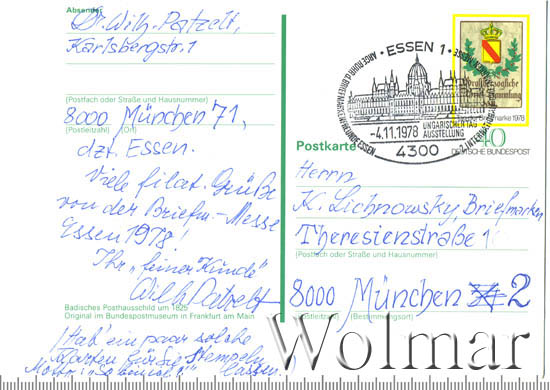 Absender
Dr. Wilh. Patzelt,
Karlsbergstr. 1
(Postfach oder Straße und Hausnummer)
8000 München 71,
(Postleitzahl) (Ort)
dzt. Essen.
Viele filat. Grüße
von der Briefm.-Messe
Essen 1978!
Ihr "feiner Kunde"
Wilh Patzelt
Badisches Posthausschild um 1825
Original im Bundespostmuseum in Frankfurt am Main
Hab' ein paar solche
Karten für Sie stempeln
lassen!
ESSEN 1
-4.11.1978
UNGARISCHER TAG
AUSSTELLUNG
4300
INTERNATIONALE
Großherzogliche
Post-
marke 1978
40
DEUTSCHE BUNDESPOST
Postkarte
Herrn
K. Lichnowsky, Briefmarken
Theresienstraße
(Postfach oder Straße und Hausnummer)
8000 München 2
(Postleitzahl) (Bestimmungsort)
Wolmar